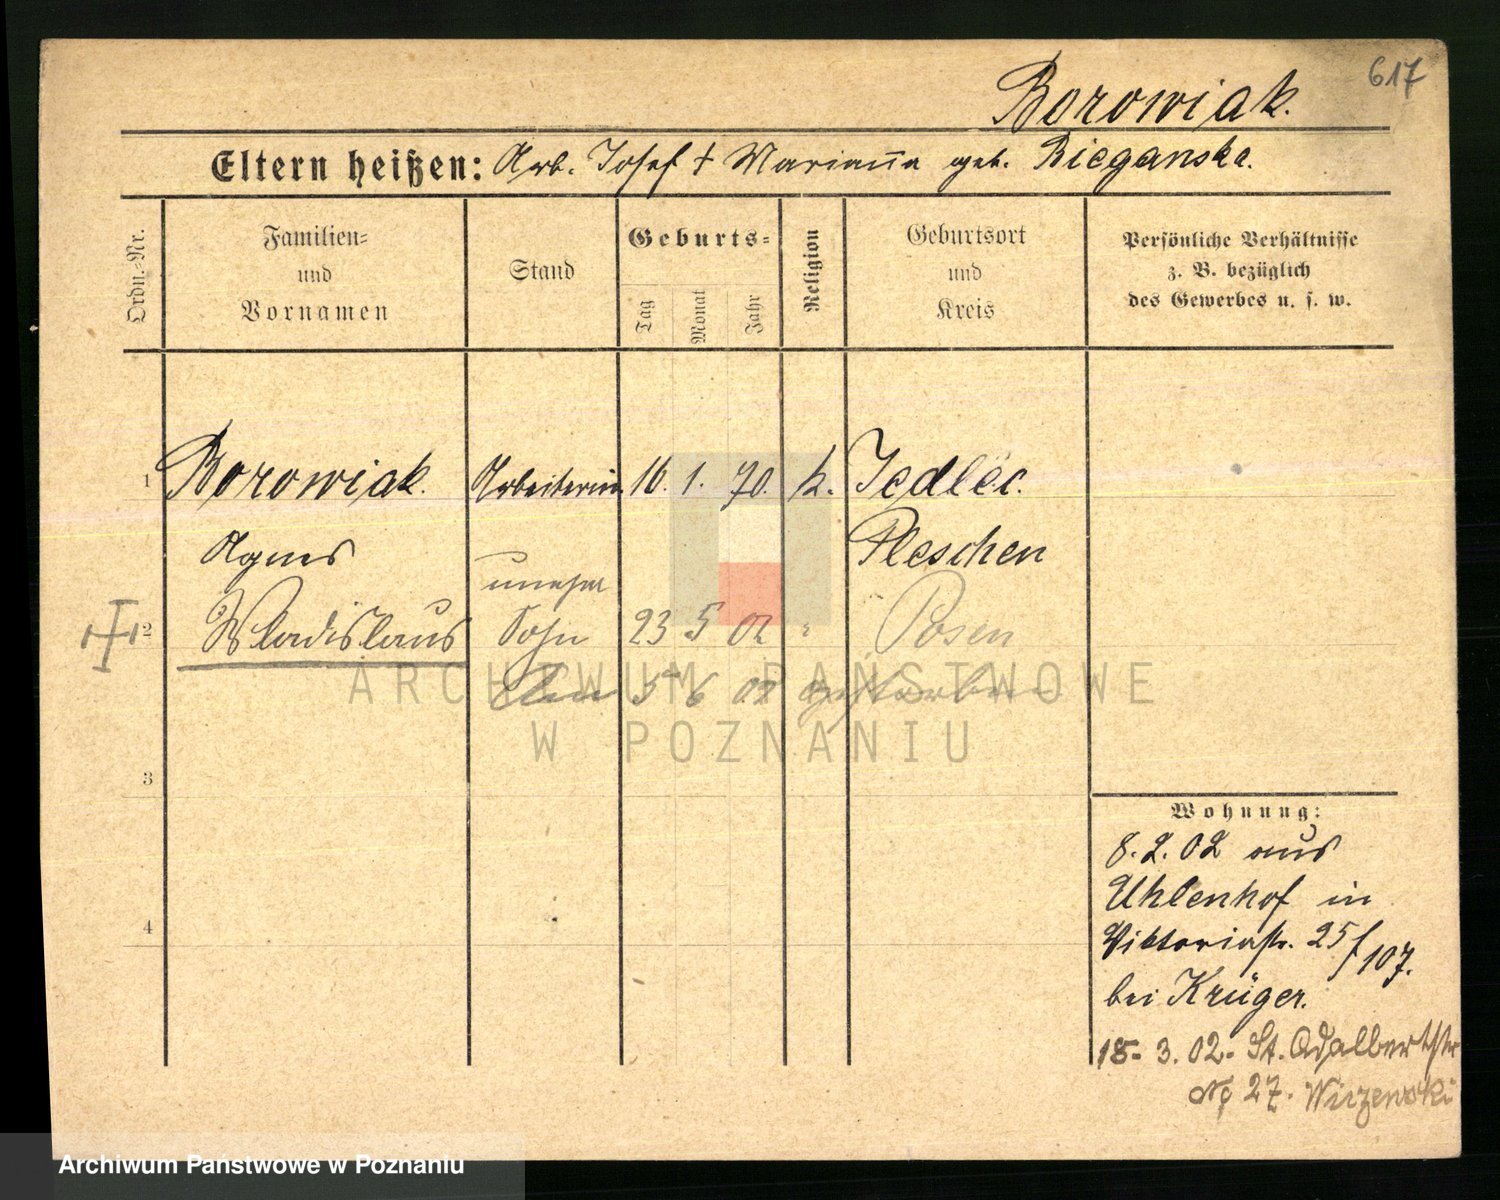 617
Borowiak.
Eltern heißen: Arb. Josef † Marianna geb. Bieganska.
Ordn.-Nr.
Familien-
und
Vornamen
Stand
Geburts-
Tag
Monat
Jahr
Religion
Geburtsort
und
Kreis
Persönliche Verhältnisse
z. B. bezüglich
des Gewerbes u. s. w.
1 Borowiak. Arbeiterin 16. 1. 70. k. Jedlec.
Agnes Pleschen
unehel
2 Wladislaus Sohn 23 5 02 " Posen
Am 5 6 02 gestorben
3
4
Wohnung:
8.2.02 aus
Uhlenhof in
Viktoriastr. 25 f 107.
bei Krüger.
18. 3. 02. St. Adalbertstr
No 27.
ARCHIWUM PAŃSTWOWE
W POZNANIU
Archiwum Państwowe w Poznaniu